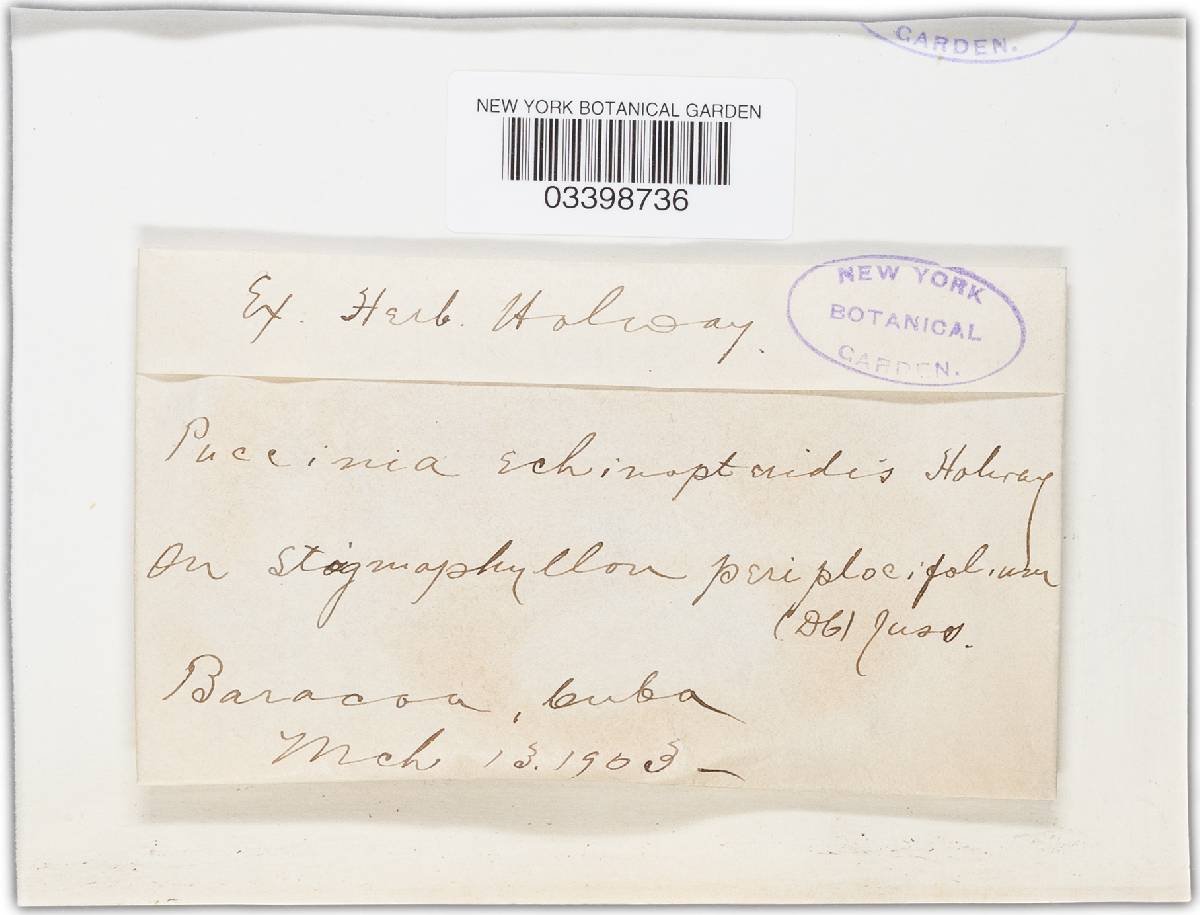 GARDEN.
NEW YORK BOTANICAL GARDEN
03398736
NEW YORK
BOTANICAL
GARDEN.
Ex. Herb. Holway.
Puccinia echinopteridis Holway
On Stigmaphyllon periplocifolium
(DC) Juss.
Baracoa, Cuba
Mch 13. 1903 –